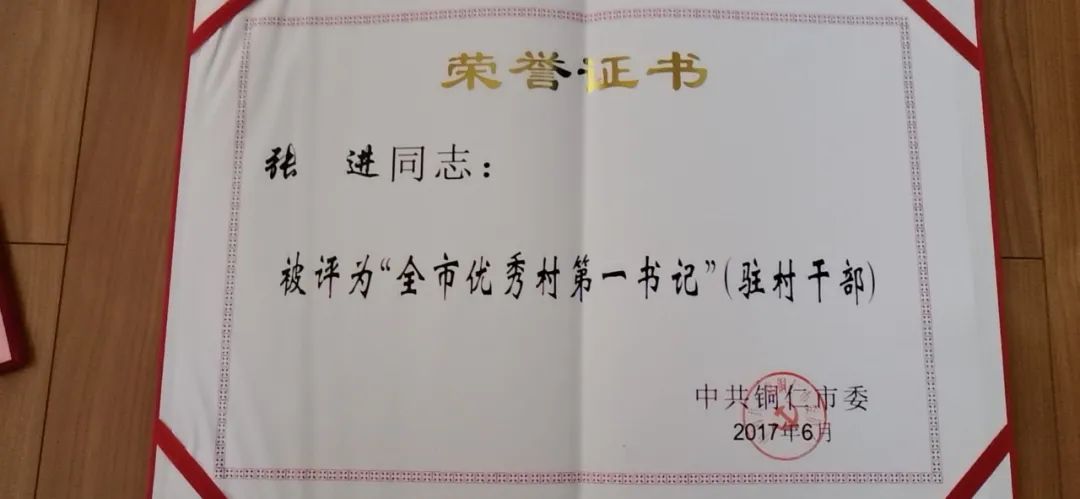 荣誉证书
张 进同志：
被评为“全市优秀村第一书记”(驻村干部)
中共铜仁市委
2017年6月